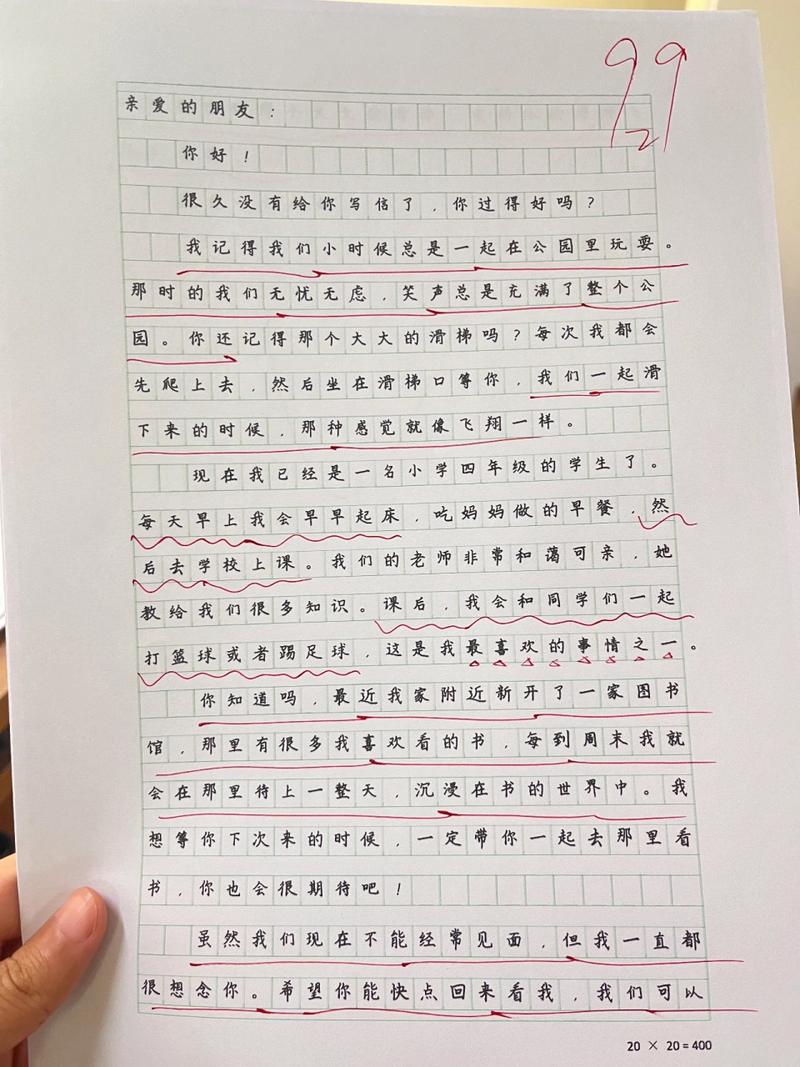 99
亲爱的朋友：
你好！
很久没有给你写信了，你过得好吗？
我记得我们小时候总是一起在公园里玩耍。
那时的我们无忧无虑，笑声总是充满了整个公
园。你还记得那个大大的滑梯吗？每次我都会
先爬上去，然后坐在滑梯口等你，我们一起滑
下来的时候，那种感觉就像飞翔一样。
现在我已经是一名小学四年级的学生了。
每天早上我会早早起床，吃妈妈做的早餐，然
后去学校上课。我们的老师非常和蔼可亲，她
教给我们很多知识。课后，我会和同学们一起
打篮球或者踢足球，这是我最喜欢的事情之一。
你知道吗，最近我家附近新开了一家图书
馆，那里有很多我喜欢看的书，每到周末我就
会在那里待上一整天，沉浸在书的世界中。我
想等你下次来的时候，一定带你一起去那里看
书，你也会很期待吧！
虽然我们现在不能经常见面，但我一直都
很想念你。希望你能快点回来看我，我们可以
20 × 20 = 400